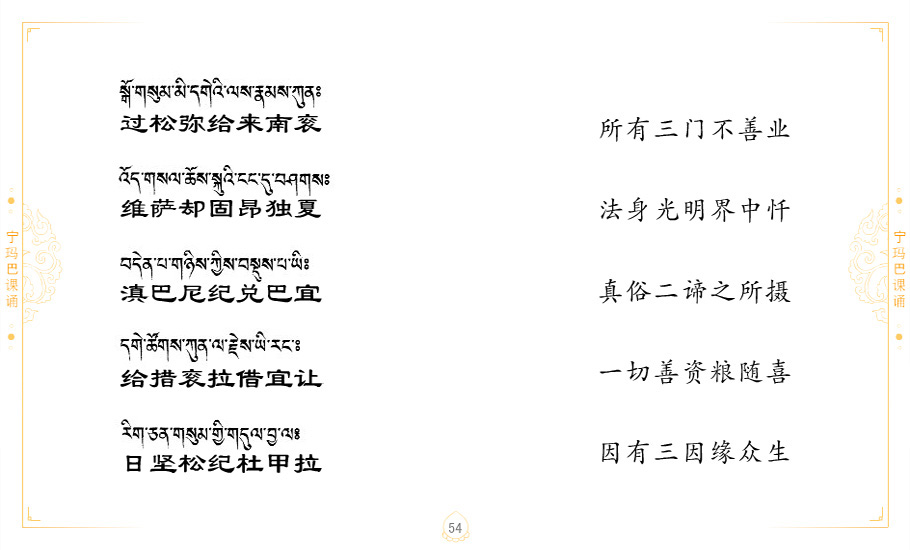 སྒོ་གསུམ་མི་དགེའི་ལས་རྣམས་ཀུན༔
过松弥给来南衮
འོད་གསལ་ཆོས་སྐུའི་ངང་དུ་བཤགས༔
维萨却固昂独夏
བདེན་པ་གཉིས་ཀྱིས་བསྡུས་པ་ཡི༔
滇巴尼纪兑巴宜
དགེ་ཚོགས་ཀུན་ལ་རྗེས་ཡི་རང་༔
给措衮拉借宜让
རིག་ཅན་གསུམ་གྱི་གདུལ་བྱ་ལ༔
日坚松纪杜甲拉
所有三门不善业
法身光明界中忏
真俗二谛之所摄
一切善资粮随喜
因有三因缘众生
宁玛巴课诵
宁玛巴课诵
54